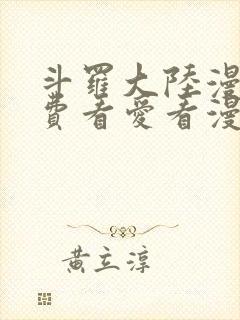 斗羅大陸漫
費看愛看漫
黃立淳